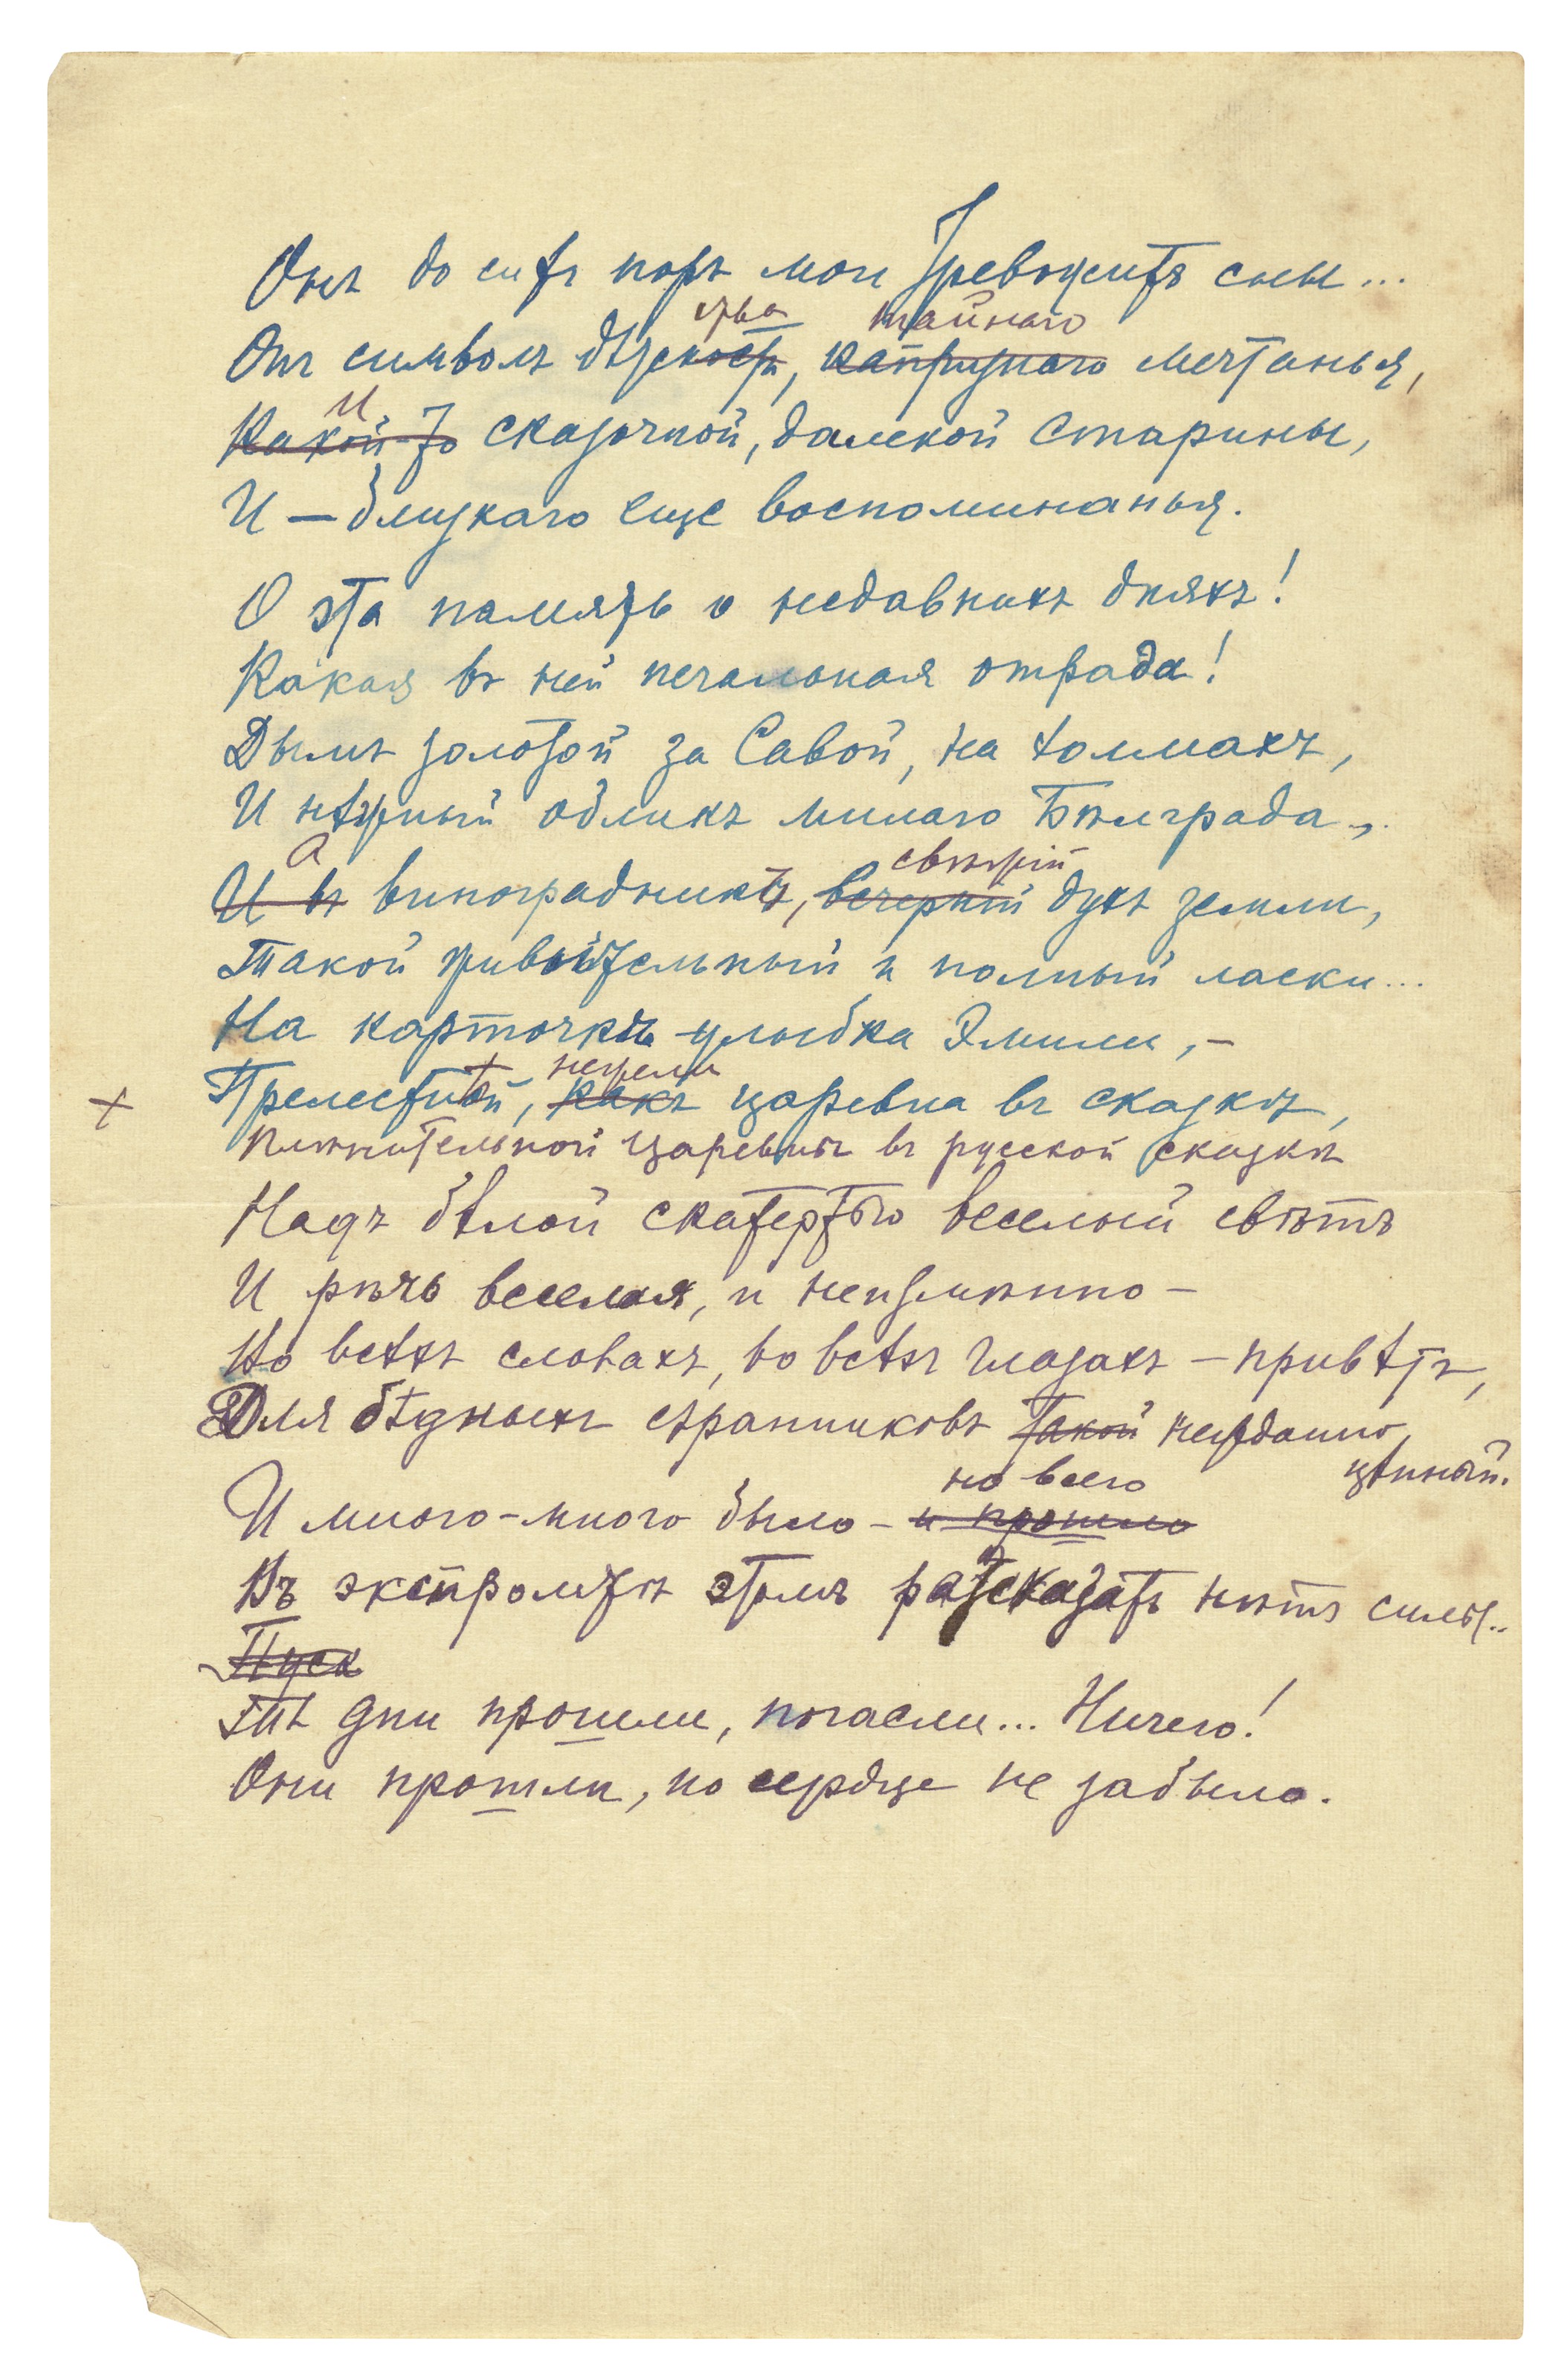 Онъ до сихъ поръ мои тревожитъ сны...
ства тайнаго
Онъ символъ дѣтскости, капризнаго мечтанья,
И
Какой-то сказочной, далекой старины,
И — близкаго еще воспоминанья.
О эта память о недавнихъ дняхъ!
Какая въ ней печальная отрада!
Дымъ золотой за Савой, на холмахъ,
И нѣжный обликъ милаго Бѣлграда,.
А свѣжій
И въ виноградникѣ, вечерній духъ земли,
Такой живительный и полный ласки...
На карточкѣ улыбка Эмили, —
нежели
+ Прелестнѣй, какъ царевна въ сказкѣ,
Плѣнительной царевны въ русской сказкѣ
Надъ бѣлой скатертью веселый свѣтъ
И рѣчь веселая, и неизмѣнно —
Во всѣхъ словахъ, во всѣхъ глазахъ — привѣтъ,
Для бѣдныхъ странниковъ такой нежданно
цѣнный.
но всего
И много-много было — и прошло
Въ экспромтѣ этомъ разсказать нѣтъ силы..
Пуск
Тѣ дни прошли, погасли... Ничего!
Они прошли, но сердце не забыло.